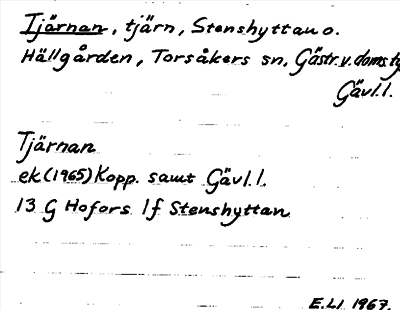 Tjärnan, tjärn, Stenshyttan o.
Hällgården, Torsåkers sn, Gästr. v. doms tg
Gävl. l.
Tjärnan
ek (1965) Kopp. samt Gävl. l.
13 G Hofors 1f Stenshyttan
E. Ll 1967.